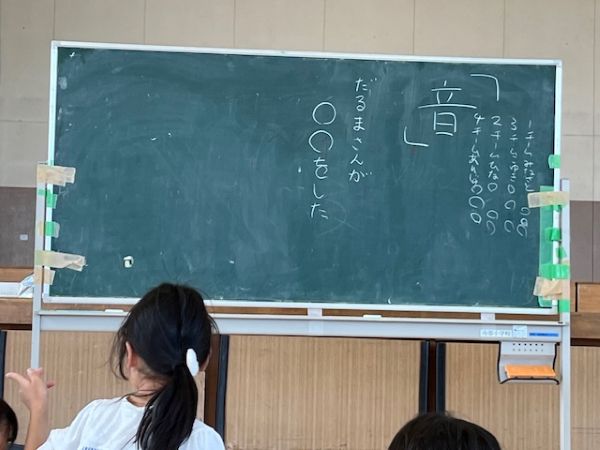 1チームみなと○○○
3チームゆき○○○○
2チームひな○○○
4チームあれは○○○
「音」
だるまさんが
○○をした